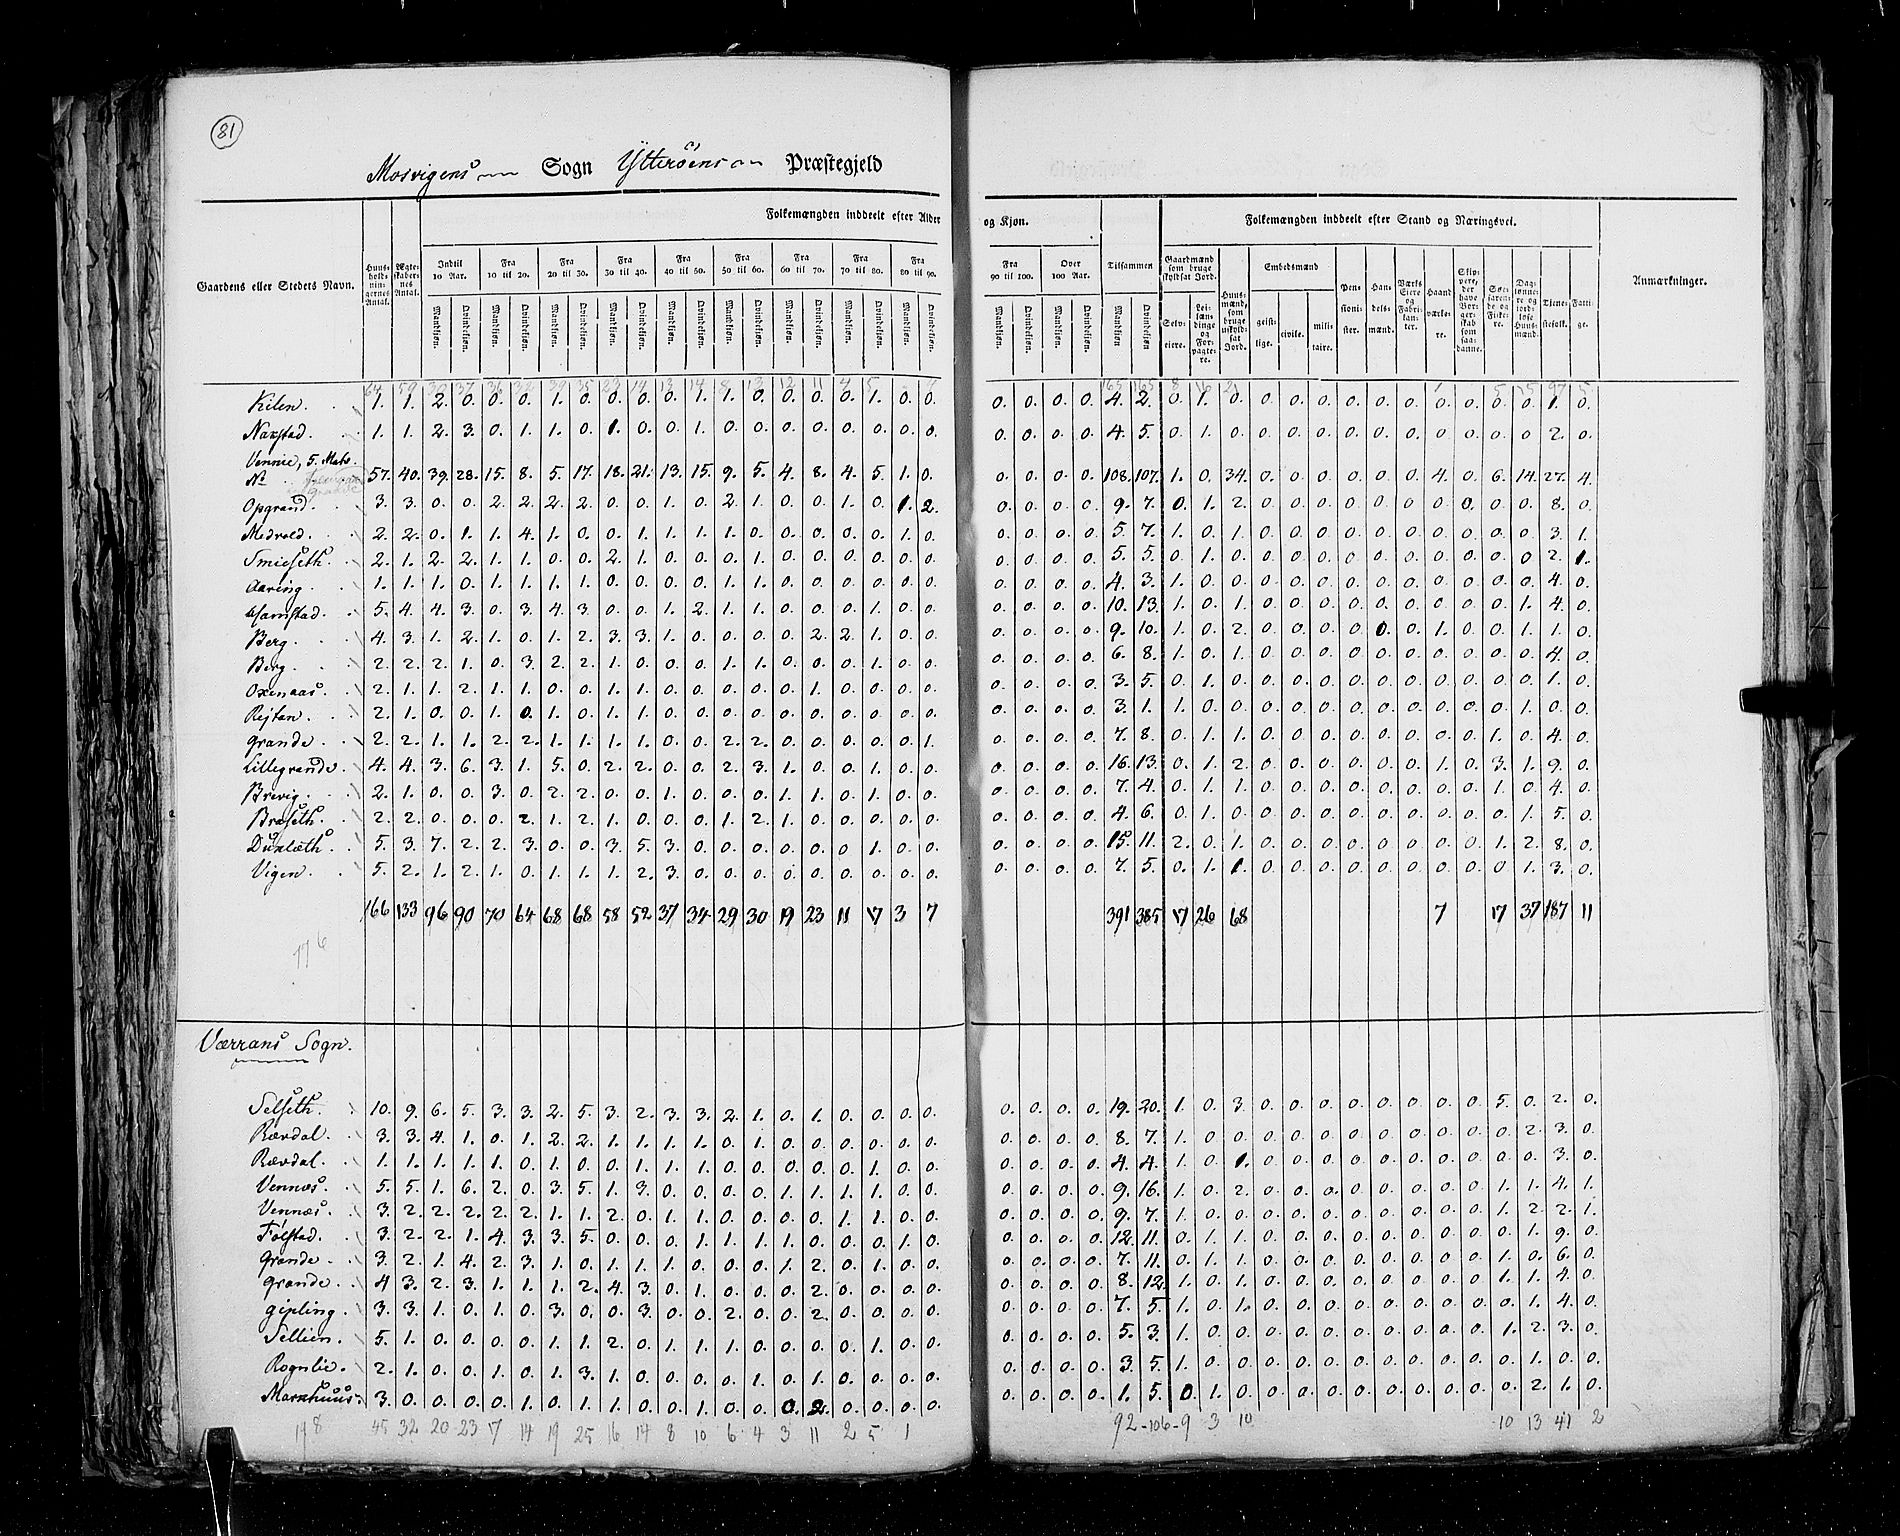 81
Mosvigens Sogn Ytterøens Præstegjeld
Folkemængden inddeelt efter Alder og Kjøn.
Folkemængden inddeelt efter Stand og Næringsvei.
Gaardens eller Stedets Navn.
Huusholdningernes Antal.
Ægteskabernes Antal.
Indtil 10 Aar.
Fra 10 til 20.
Fra 20 til 30.
Fra 30 til 40.
Fra 40 til 50.
Fra 50 til 60.
Fra 60 til 70.
Fra 70 til 80.
Fra 80 til 90.
Fra 90 til 100.
Over 100 Aar.
Tilsammen
Mandkjøn. Qvindekjøn.
Gaardmænd som bruge skyldsat Jord.
Selveiere.
Leilændinge og Forpagtere.
Huusmænd, som bruge uskyldsat Jord.
Embedsmænd
geistlige. civile. militaire.
Pensionister.
Handelsmænd.
Værks Eiere og Fabrikanter.
Haandværkere.
Skippere, der have Borgerskab som saadanne.
Søefarende og Fiskere.
Daglønnere og jordløse Huusmænd.
Tjenestefolk.
Fattige.
Anmærkninger.
Kilen. 1. 1. 2. 0. 0. 0. 1. 0. 0. 0. 0. 1. 1. 0. 0. 0. 0. 1. 0. 0. 0. 0. 0. 0. 4. 2. 0. 1. 0. 0. 0. 0. 0. 0. 0. 0. 0. 0. 0. 1. 0.
Naxstad. 1. 1. 2. 3. 0. 1. 1. 0. 1. 0. 0. 1. 0. 0. 0. 0. 0. 0. 0. 0. 0. 0. 0. 0. 4. 5. 0. 1. 0. 0. 0. 0. 0. 0. 0. 0. 0. 0. 0. 2. 0.
Vennie, 5. Matr.
No 57. 40. 39. 28. 15. 8. 5. 17. 18. 21. 13. 15. 9. 5. 4. 8. 4. 5. 1. 0. 0. 0. 0. 0. 108. 107. 1. 0. 34. 0. 0. 0. 0. 0. 0. 4. 0. 6. 14. 27. 4.
Opgrand. 3. 3. 0. 0. 2. 2. 2. 2. 0. 0. 1. 0. 2. 1. 0. 0. 1. 0. 1. 2. 0. 0. 0. 0. 9. 7. 0. 1. 2. 0. 0. 0. 0. 0. 0. 0. 0. 0. 0. 8. 0.
2. 2. 0. 1. 1. 4. 1. 0. 0. 1. 1. 1. 1. 0. 0. 0. 0. 0. 1. 0. 0. 0. 0. 0. 5. 7. 1. 0. 1. 0. 0. 0. 0. 0. 0. 0. 0. 0. 0. 3. 1.
Smieseth. 2. 1. 2. 2. 1. 1. 0. 0. 2. 1. 0. 0. 0. 1. 0. 0. 0. 0. 0. 0. 0. 0. 0. 0. 5. 5. 0. 1. 0. 0. 0. 0. 0. 0. 0. 0. 0. 0. 0. 2. 1.
Aaring. 1. 1. 1. 0. 1. 1. 1. 1. 0. 0. 0. 0. 1. 1. 0. 0. 0. 0. 0. 0. 0. 0. 0. 0. 4. 3. 1. 0. 0. 0. 0. 0. 0. 0. 0. 0. 0. 0. 0. 4. 0.
5. 4. 4. 3. 0. 3. 4. 3. 0. 0. 1. 2. 1. 1. 0. 0. 0. 1. 0. 0. 0. 0. 0. 0. 10. 13. 1. 0. 1. 0. 0. 0. 0. 0. 0. 0. 0. 0. 1. 4. 0.
Berg. 4. 3. 1. 2. 1. 0. 1. 2. 3. 3. 1. 0. 0. 0. 0. 2. 2. 1. 0. 0. 0. 0. 0. 0. 9. 10. 1. 0. 2. 0. 0. 0. 0. 0. 0. 1. 0. 0. 1. 1. 0.
Berg. 2. 2. 2. 1. 0. 3. 2. 2. 1. 0. 0. 0. 1. 1. 0. 0. 0. 1. 0. 0. 0. 0. 0. 0. 6. 8. 1. 0. 1. 0. 0. 0. 0. 0. 0. 0. 0. 0. 0. 4. 0.
Oxenaas. 2. 1. 1. 2. 1. 1. 0. 0. 1. 1. 0. 0. 0. 0. 0. 1. 0. 0. 0. 0. 0. 0. 0. 0. 3. 5. 0. 1. 0. 0. 0. 0. 0. 0. 0. 0. 0. 0. 0. 1. 0.
Rejtan. 2. 1. 0. 0. 1. 0. 1. 0. 1. 1. 0. 0. 0. 0. 0. 0. 0. 0. 0. 0. 0. 0. 0. 0. 3. 1. 1. 0. 0. 0. 0. 0. 0. 0. 0. 0. 0. 0. 1. 0. 0.
Grande. 2. 2. 1. 1. 2. 2. 1. 1. 1. 1. 0. 0. 2. 2. 0. 0. 0. 0. 0. 1. 0. 0. 0. 0. 7. 8. 0. 1. 1. 0. 0. 0. 0. 0. 0. 0. 0. 1. 0. 4. 0.
Lillegrande. 4. 4. 3. 6. 3. 1. 5. 0. 2. 2. 0. 0. 2. 3. 1. 0. 0. 1. 0. 0. 0. 0. 0. 0. 16. 13. 0. 1. 2. 0. 0. 0. 0. 0. 0. 1. 0. 3. 1. 9. 0.
Brevig. 2. 1. 0. 0. 3. 0. 2. 2. 0. 0. 1. 0. 0. 0. 1. 1. 0. 1. 0. 0. 0. 0. 0. 0. 7. 4. 0. 1. 1. 0. 0. 0. 0. 0. 0. 0. 0. 1. 0. 4. 0.
Braseth. 2. 2. 0. 0. 0. 2. 1. 2. 1. 0. 0. 0. 1. 2. 1. 0. 0. 0. 0. 0. 0. 0. 0. 0. 4. 6. 0. 1. 0. 0. 0. 0. 0. 0. 0. 0. 0. 0. 1. 5. 0.
5. 3. 7. 2. 2. 3. 0. 0. 3. 5. 3. 0. 0. 0. 0. 0. 0. 1. 0. 0. 0. 0. 0. 0. 15. 11. 2. 0. 1. 0. 0. 0. 0. 0. 0. 0. 0. 1. 2. 8. 0.
Vigen. 5. 2. 1. 2. 1. 0. 1. 1. 1. 2. 3. 0. 0. 0. 0. 0. 0. 0. 0. 0. 0. 0. 0. 0. 7. 5. 0. 1. 1. 0. 0. 0. 0. 0. 0. 0. 0. 0. 1. 3. 0.
166 133 96 90 70 64 68 68 58 52 37 34 29 30 19 23 11 17 3 7 391 385 17 26 68 7 17 37 187 11
176
Værrans Sogn.
Selseth. 10. 9. 6. 5. 3. 3. 2. 5. 3. 2. 3. 3. 2. 1. 0. 1. 0. 0. 0. 0. 0. 0. 0. 0. 19. 20. 1. 0. 3. 0. 0. 0. 0. 0. 0. 0. 0. 5. 0. 2. 0.
Rævdal. 3. 3. 4. 1. 0. 1. 2. 2. 1. 1. 1. 1. 0. 1. 0. 0. 0. 0. 0. 0. 0. 0. 0. 0. 8. 7. 1. 0. 0. 0. 0. 0. 0. 0. 0. 0. 0. 0. 2. 3. 0.
Rævdal. 1. 1. 1. 1. 1. 0. 1. 0. 0. 1. 1. 1. 0. 0. 0. 0. 0. 1. 0. 0. 0. 0. 0. 0. 4. 4. 1. 0. 1. 0. 0. 0. 0. 0. 0. 0. 0. 0. 0. 3. 0.
Vennæs. 5. 5. 1. 6. 2. 0. 3. 5. 1. 3. 0. 0. 0. 0. 1. 1. 1. 1. 0. 0. 0. 0. 0. 0. 9. 16. 1. 0. 2. 0. 0. 0. 0. 0. 0. 0. 0. 1. 1. 4. 1.
Vennæs. 3. 2. 2. 2. 2. 2. 1. 1. 2. 0. 1. 1. 0. 0. 0. 0. 1. 1. 0. 0. 0. 0. 0. 0. 9. 7. 1. 0. 0. 0. 0. 0. 0. 0. 0. 0. 0. 1. 2. 2. 1.
Følstad. 3. 2. 2. 1. 4. 3. 3. 5. 0. 0. 0. 1. 1. 1. 1. 0. 0. 0. 1. 0. 0. 0. 0. 0. 12. 11. 0. 1. 1. 0. 0. 0. 0. 0. 0. 0. 0. 0. 1. 9. 0.
Grande. 3. 2. 1. 4. 2. 3. 1. 0. 1. 1. 1. 0. 0. 0. 1. 2. 0. 1. 0. 0. 0. 0. 0. 0. 7. 11. 0. 1. 1. 0. 0. 0. 0. 0. 0. 0. 0. 1. 0. 6. 0.
Grande. 4 3. 2. 3. 1. 1. 1. 2. 4. 3. 0. 1. 0. 0. 0. 2. 0. 0. 0. 0. 0. 0. 0. 0. 8. 12. 1. 0. 1. 0. 0. 0. 0. 0. 0. 0. 0. 1. 1. 4. 0.
Gipling. 3. 3. 1. 0. 1. 0. 3. 0. 0. 3. 0. 0. 2. 0. 0. 2. 0. 0. 0. 0. 0. 0. 0. 0. 7. 5. 1. 0. 1. 0. 0. 0. 0. 0. 0. 0. 0. 0. 1. 4. 0.
Sellien. 5. 1. 0. 0. 0. 0. 1. 1. 2. 0. 1. 1. 1. 0. 0. 0. 0. 1. 0. 0. 0. 0. 0. 0. 5. 3. 1. 0. 0. 0. 0. 0. 0. 0. 0. 0. 0. 1. 2. 3. 0.
Rognlie. 2. 1. 0. 0. 1. 0. 1. 3. 1. 0. 0. 0. 0. 1. 0. 1. 0. 0. 0. 0. 0. 0. 0. 0. 3. 5. 1. 0. 0. 0. 0. 0. 0. 0. 0. 0. 0. 0. 1. 0. 0.
3. 0. 0. 0. 0. 1. 0. 1. 1. 0. 0. 1. 0. 0. 0. 2. 0. 0. 0. 0. 0. 0. 0. 0. 1. 5. 0. 1. 0. 0. 0. 0. 0. 0. 0. 0. 0. 0. 2. 1. 0.
198 45 32 20 23 17 14 19 25 16 14 8 10 6 4 3 11 2 5 1 92 106 9 3 10 10 13 41 2